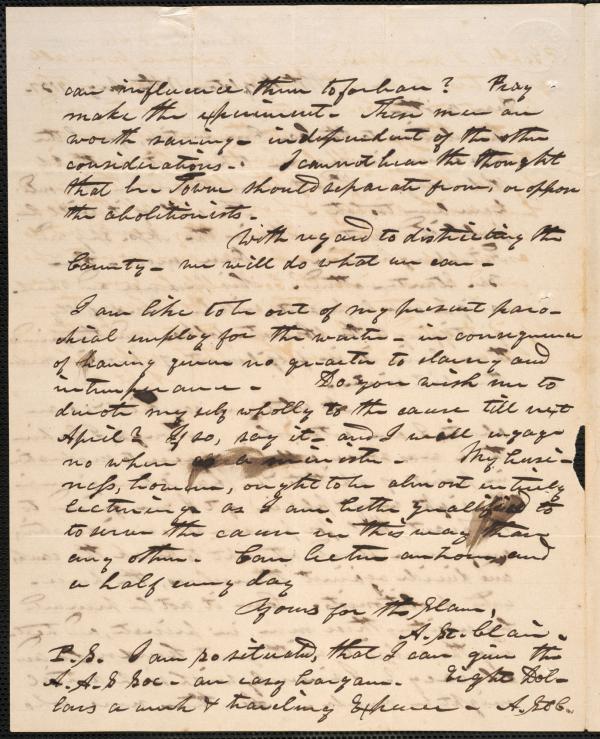 can influence them to forbear? Pray
make the experiment - These men are
worth saving - independent of the other
considerations. I cannot bear the thought
that br. Towne should separate from, or oppose
the abolitionists.
With regard to districting the
County - we will do what we can -
I am like to be out of my present paro-
chial employ for the winter - in consequence
of having given no quarter to slavery and
intemperance - Do you wish me to
devote myself wholly to the cause till next
April? If so, say it - and I will engage
no where as a minister - My busi-
ness, however, ought to be almost entirely
lecturing as I am better qualified to
to serve the cause in this way than
any other. Can lecture an hour, and
a half every day
Yours for the Slave,
A. St. Clair.
P.S. I am so situated, that I can give the
A. A. S Soc - an easy bargain. Eight Dol-
lars a week & traveling Expenses - A. St C.